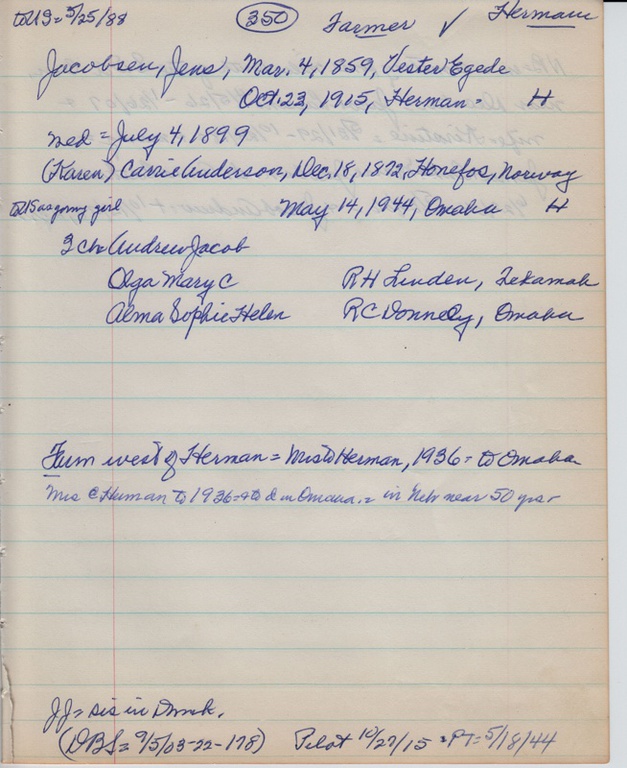 to US = 5/25/88 (350) Farmer ✓ Herman
Jacobsen, Jens, Mar. 4, 1859, Vester Egede
Oct. 23, 1915, Herman - H
med = July 4, 1899
(Karen) Carrie Anderson, Dec. 18, 1872, Honefos, Norway
to US as young girl May 14, 1944, Omaha H
3 ch = Andrew Jacob
Olga Mary C R H Linden, Tekamah
Alma Sophie Helen R C Donnelly, Omaha
Farm west of Herman = Mrs to Herman, 1936 = to Omaha
Mrs C Herman to 1936 = d in Omaha. = in Neb near 50 yrs -
JJ = sis in Dmk.
(DBS = 9/5/03-22-178) Pilot 10/27/15 = PT = 5/18/44